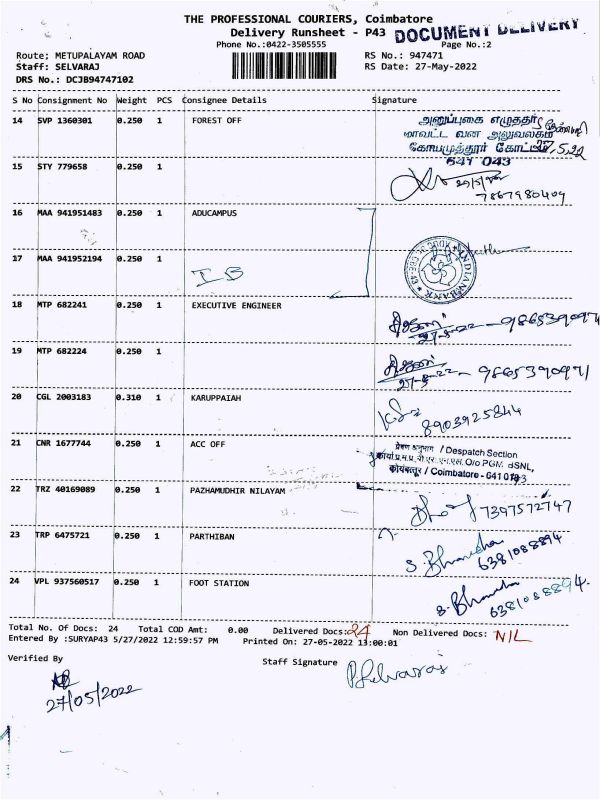 THE PROFESSIONAL COURIERS, Coimbatore
Delivery Runsheet - P43
DOCUMENT DELIVERY
Phone No.:0422-3505555
Page No.:2
Route; METUPALAYAM ROAD
RS No.: 947471
Staff: SELVARAJ
RS Date: 27-May-2022
DRS No.: DCJB94747102
S No Consignment No Weight PCS Consignee Details Signature
14 SVP 1360301 0.250 1 FOREST OFF
அனுப்புகை எழுத்தர்
மாவட்ட வன அலுவலகம்
கோயமுத்தூர் கோட்டம்
27.5.22
641 043
15 STY 779658 0.250 1
27/5/22
7867980409
16 MAA 941951483 0.250 1 ADUCAMPUS
17 MAA 941952194 0.250 1
IB
INDIAN BANK
18 MTP 682241 0.250 1 EXECUTIVE ENGINEER
27-5-22 - 9865390971
19 MTP 682224 0.250 1
27-5-22 - 9865390971
20 CGL 2003183 0.310 1 KARUPPAIAH
8903925844
21 CNR 1677744 0.250 1 ACC OFF
प्रेषण अनुभाग / Despatch Section
O/o PGM, BSNL,
कोयंबत्तूर / Coimbatore - 641 043
22 TRZ 40169089 0.250 1 PAZHAMUDHIR NILAYAM
7397572747
23 TRP 6475721 0.250 1 PARTHIBAN
6381088894
24 VPL 937560517 0.250 1 FOOT STATION
6381088894
Total No. Of Docs: 24 Total COD Amt: 0.00 Delivered Docs: 24 Non Delivered Docs: NIL
Entered By :SURYAP43 5/27/2022 12:59:57 PM Printed On: 27-05-2022 13:00:01
Verified By
Staff Signature
P Selvaraj
27/05/2022